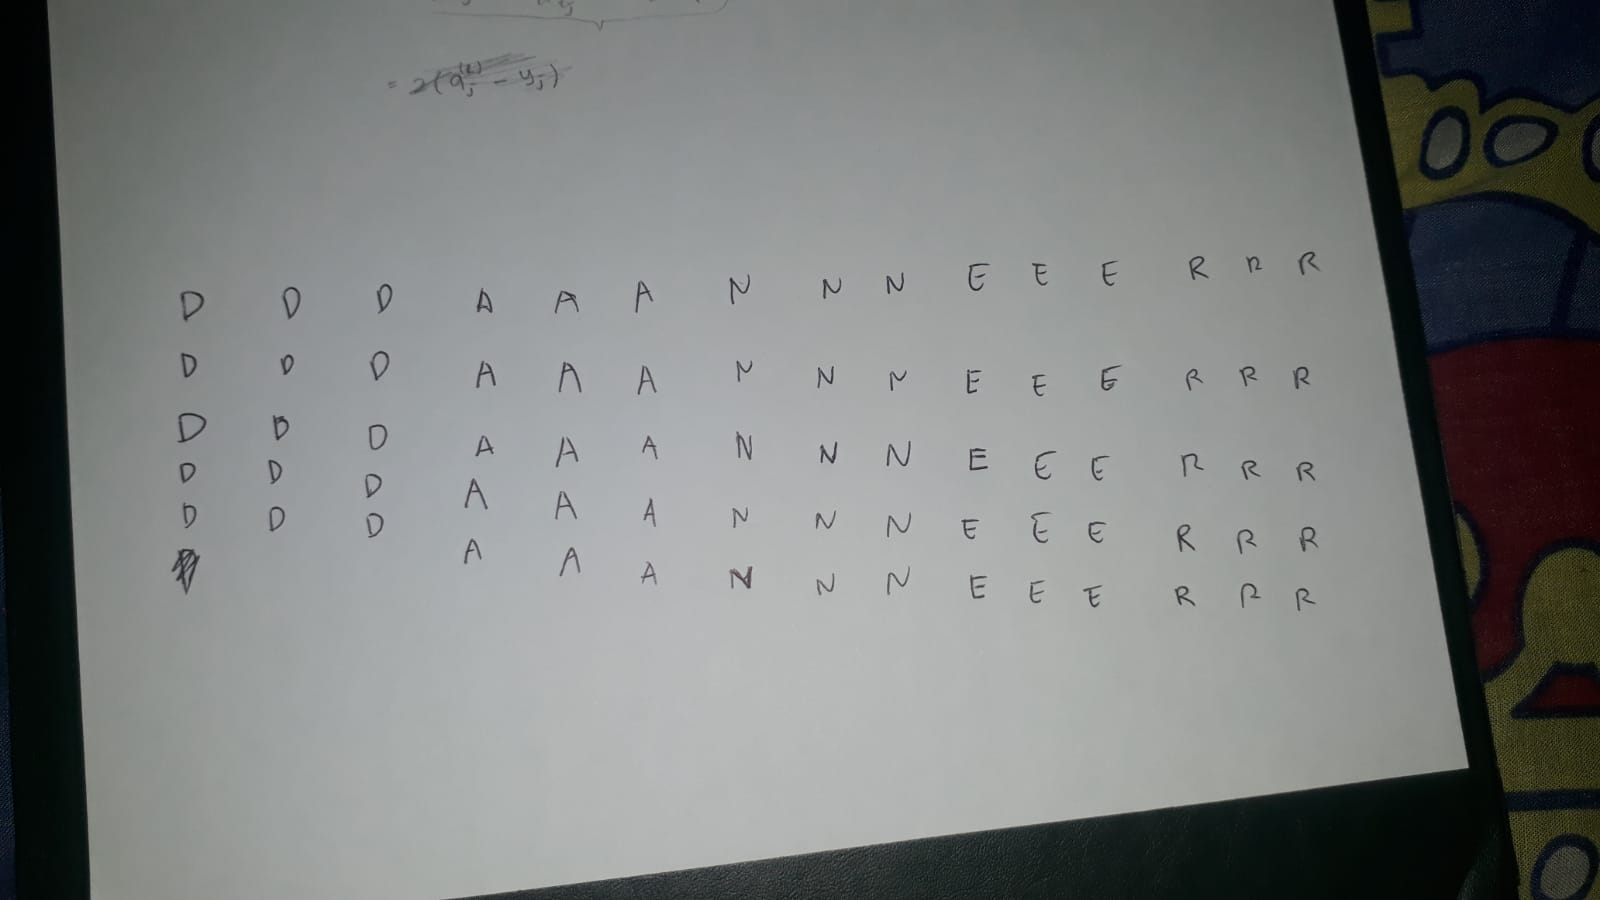 = 2(a_j^(L) - y_j)
D D D A A A N N N E E E R R R
D D D A A A N N N E E E R R R
D D D A A A N N N E E E R R R
D D D A A A N N N E E E R R R
D D D A A A N N N E E E R R R